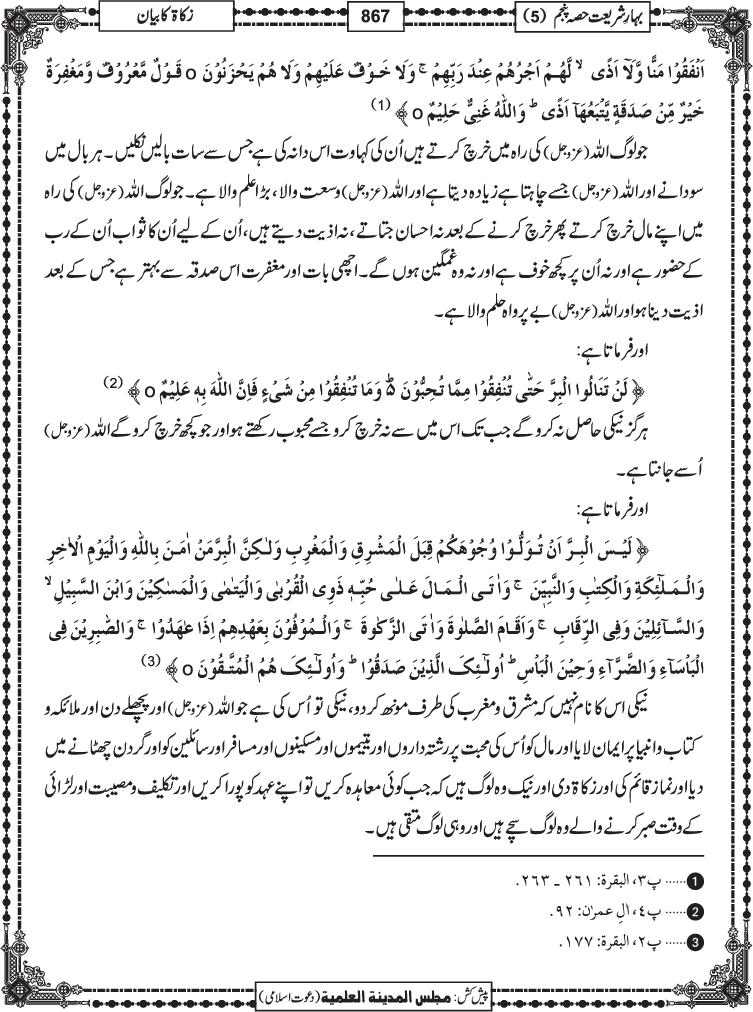 بہارِ شریعت حصہ پنجم (5)
867
زکاۃ کا بیان
اَنْفَقُوْا مَنًّا وَّلَاۤ اَذًی ۙ لَّهُمْ اَجْرُهُمْ عِنْدَ رَبِّهِمْ ۚ وَلَا خَوْفٌ عَلَیْهِمْ وَلَا هُمْ یَحْزَنُوْنَ o قَوْلٌ مَّعْرُوْفٌ وَّمَغْفِرَةٌ
خَیْرٌ مِّنْ صَدَقَةٍ یَّتْبَعُهَاۤ اَذًی ؕ وَاللّٰهُ غَنِیٌّ حَلِیْمٌ o ﴾ (1)
جو لوگ اللہ (عزوجل) کی راہ میں خرچ کرتے ہیں اُن کی کہاوت اس دانہ کی ہے جس سے سات بالیں نکلیں۔ ہر بال میں
سو دانے اور اللہ (عزوجل) جسے چاہتا ہے زیادہ دیتا ہے اور اللہ (عزوجل) وسعت والا، بڑا علم والا ہے۔ جو لوگ اللہ (عزوجل) کی راہ
میں اپنے مال خرچ کرتے پھر خرچ کرنے کے بعد نہ احسان جتاتے، نہ اذیت دیتے ہیں، اُن کے لیے اُن کا ثواب اُن کے رب
کے حضور ہے اور نہ اُن پر کچھ خوف ہے اور نہ وہ غمگین ہوں گے۔ اچھی بات اور مغفرت اس صدقہ سے بہتر ہے جس کے بعد
اذیت دینا ہو اور اللہ (عزوجل) بے پرواہ حلم والا ہے۔
اور فرماتا ہے:
﴿ لَنْ تَنَالُوا الْبِرَّ حَتّٰی تُنْفِقُوْا مِمَّا تُحِبُّوْنَ ۵ؕ وَمَا تُنْفِقُوْا مِنْ شَیْءٍ فَاِنَّ اللّٰهَ بِهٖ عَلِیْمٌ o ﴾ (2)
ہرگز نیکی حاصل نہ کرو گے جب تک اس میں سے نہ خرچ کرو جسے محبوب رکھتے ہو اور جو کچھ خرچ کرو گے اللہ (عزوجل)
اُسے جانتا ہے۔
اور فرماتا ہے:
﴿ لَیْسَ الْبِرَّ اَنْ تُوَلُّوْا وُجُوْهَكُمْ قِبَلَ الْمَشْرِقِ وَالْمَغْرِبِ وَلٰكِنَّ الْبِرَّ مَنْ اٰمَنَ بِاللّٰهِ وَالْیَوْمِ الْاٰخِرِ
وَالْمَلٰٓئِكَةِ وَالْكِتٰبِ وَالنَّبِیّٖنَ ۚ وَاٰتَی الْمَالَ عَلٰی حُبِّهٖ ذَوِی الْقُرْبٰی وَالْیَتٰمٰی وَالْمَسٰكِیْنَ وَابْنَ السَّبِیْلِ ۙ
وَالسَّآئِلِیْنَ وَفِی الرِّقَابِ ۚ وَاَقَامَ الصَّلٰوةَ وَاٰتَی الزَّكٰوةَ ۚ وَالْمُوْفُوْنَ بِعَهْدِهِمْ اِذَا عٰهَدُوْا ۚ وَالصّٰبِرِیْنَ فِی
الْبَاْسَآءِ وَالضَّرَّآءِ وَحِیْنَ الْبَاْسِ ؕ اُولٰٓئِكَ الَّذِیْنَ صَدَقُوْا ؕ وَاُولٰٓئِكَ هُمُ الْمُتَّقُوْنَ o ﴾ (3)
نیکی اس کا نام نہیں کہ مشرق و مغرب کی طرف مونھ کر دو، نیکی تو اُس کی ہے جو اللہ (عزوجل) اور پچھلے دن اور ملائکہ و
کتاب و انبیا پر ایمان لایا اور مال کو اُس کی محبت پر رشتہ داروں اور یتیموں اور مسکینوں اور مسافر اور سائلین کو اور گردن چھٹانے میں
دیا اور نماز قائم کی اور زکاۃ دی اور نیک وہ لوگ ہیں کہ جب کوئی معاہدہ کریں تو اپنے عہد کو پورا کریں اور تکلیف و مصیبت اور لڑائی
کے وقت صبر کرنے والے وہ لوگ سچے ہیں اور وہی لوگ متقی ہیں۔
1 ...... پ٣، البقرة: ٢٦١ ـ ٢٦٣.
2 ...... پ٤، اٰلِ عمرٰن: ٩٢.
3 ...... پ٢، البقرة: ١٧٧.
پیش کش: مجلس المدینۃ العلمیۃ (دعوت اسلامی)